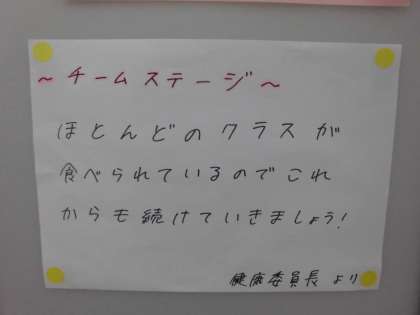 ～チームステージ～
ほとんどのクラスが
食べられているのでこれ
からも続けていきましょう！
健康委員長より